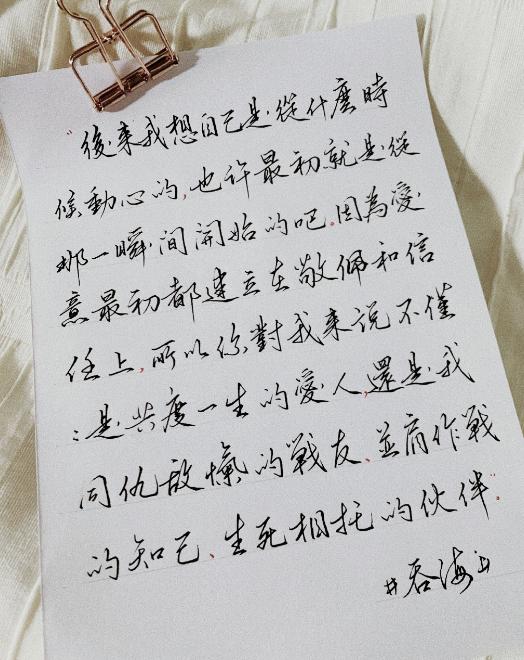 "後来我想自己是從什麼時
候動心的,也许最初就是從
那一瞬间開始的吧.因為愛
意最初都建立在敬佩和信
任上,所以你對我来说不僅
:是共度一生的愛人,還是我
同仇敌愾的戰友、並肩作戰
的知己、生死相托的伙伴."
#吞海